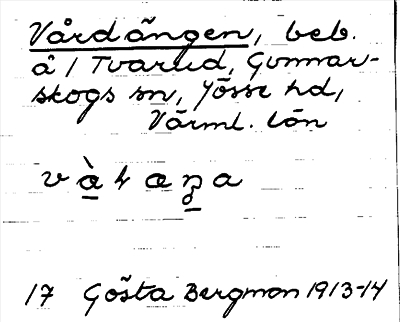 Vårdängen, beb.
å 1 Tvarud, Gunnar-
skogs sn, Jösse hd,
Värml. län
17 Gösta Bergman 1913-14